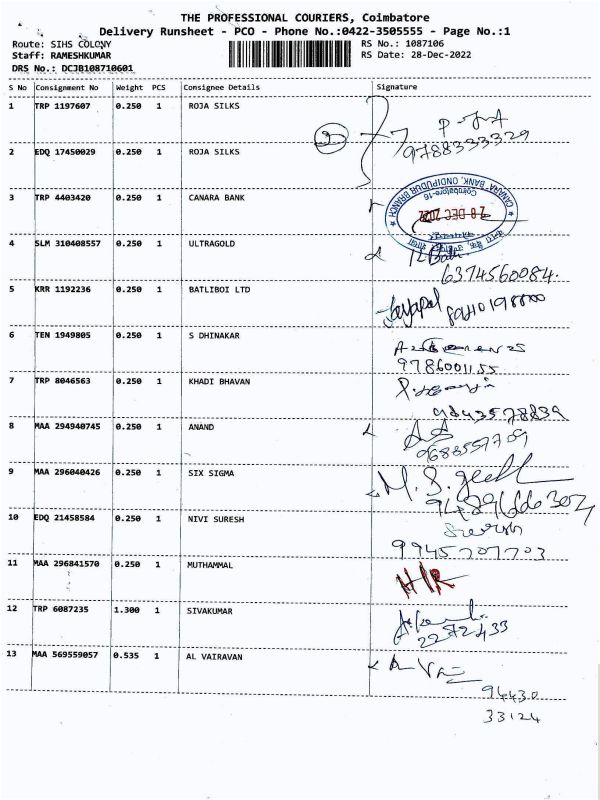 THE PROFESSIONAL COURIERS, Coimbatore
Delivery Runsheet - PCO - Phone No.:0422-3505555 - Page No.:1
Route: SIHS COLONY RS No.: 1087106
Staff: RAMESHKUMAR RS Date: 28-Dec-2022
DRS No.: DCJB108710601
S No Consignment No Weight PCS Consignee Details Signature
1 TRP 1197607 0.250 1 ROJA SILKS
2
9788333329
2 EDQ 17450029 0.250 1 ROJA SILKS
3 TRP 4403420 0.250 1 CANARA BANK
CANARA BANK, ONDIPUDUR BRANCH
Coimbatore-16
28 DEC 2022
4 SLM 310408557 0.250 1 ULTRAGOLD
6374560084.
5 KRR 1192236 0.250 1 BATLIBOI LTD
Jayapal
6 TEN 1949805 0.250 1 S DHINAKAR
9786001155
7 TRP 8046563 0.250 1 KHADI BHAVAN
9843578839
8 MAA 294940745 0.250 1 ANAND
9 MAA 296040426 0.250 1 SIX SIGMA
10 EDQ 21458584 0.250 1 NIVI SURESH
Suresh
9945707703
11 MAA 296841570 0.250 1 MUTHAMMAL
12 TRP 6087235 1.300 1 SIVAKUMAR
2272433
13 MAA 569559057 0.535 1 AL VAIRAVAN
94430
33124